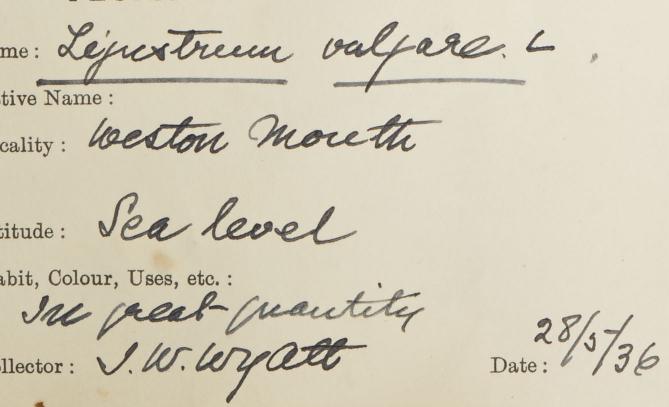 me: Ligustrum vulgare. L.
tive Name:
cality: Weston Mouth
titude: Sea level
abit, Colour, Uses, etc.:
In great quantity
llector: J. W. Wyatt Date: 28/5/36